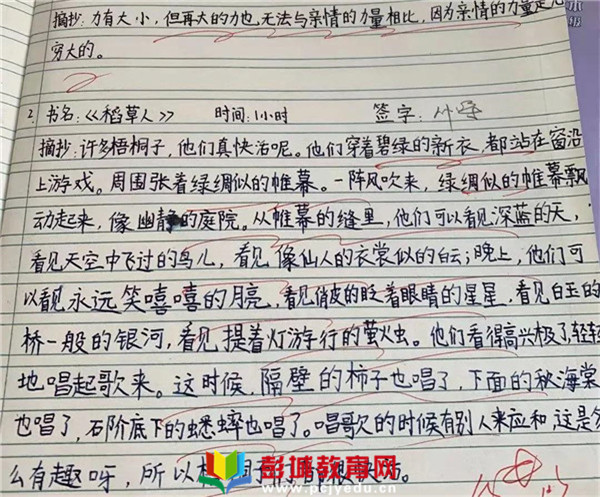 摘抄:力有大小,但再大的力也无法与亲情的力量相比,因为亲情的力量是
穷大的。
2 书名:《稻草人》 时间:1小时 签字:
摘抄:许多梧桐子,他们真快活呢。他们穿着碧绿的新衣,都站在窗沿
上游戏。周围张着绿绸似的帷幕。一阵风吹来,绿绸似的帷幕飘
动起来,像幽静的庭院。从帷幕的缝里,他们可以看见深蓝的天,
看见天空中飞过的鸟儿,看见像仙人的衣裳似的白云;晚上,他们可
以看见永远笑嘻嘻的月亮,看见俏皮的眨着眼睛的星星,看见白玉的
桥一般的银河,看见提着灯游行的萤火虫。他们看得高兴极了,轻轻
地唱起歌来。这时候,隔壁的柿子也唱了,下面的秋海棠
也唱了,石阶底下的蟋蟀也唱了。唱歌的时候有别人来应和,这是
么有趣呀,所以梧桐子
彭城教育网
www.pcjyedu.cn